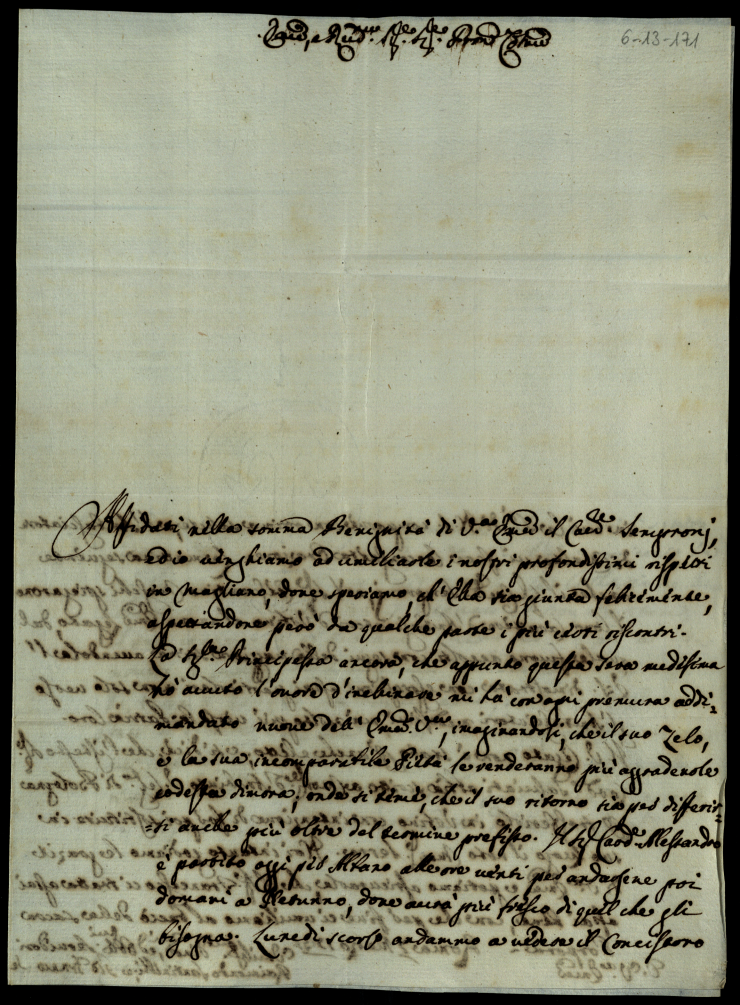 Em̃o, e Rev.mo Sig.re Sig.re Pron̄e Col.mo
6-13-171
Affidati nella somma Benignità di V.ra Em̃a il Cav.re Sempronj,
ed io venghiamo ad umiliarle i nostri profondissimi rispetti
in Magliano, dove speriamo, ch' Ella sia giunta felicemente,
aspettandone però da qualche parte i più certi riscontri.
La Sig.ra Principessa ancora, che appunto questa sera medesima
hò avuto l'onore d'inchinare mi hà con ogni premura addi=
mandato nuove dell' Em̃a V.ra, imaginandosi, che il suo Zelo,
e la sua incomparabile Pietà le renderanno più aggradevole
codesta dimora, onde si teme, che il suo ritorno sia per differir=
=si anche più oltre del termine prefisso. Il Sig.r Card. Alessandro
è partito oggi per Albano alle ore venti per andarsene poi
domani a Nettunno, dove avrà più fresco di quel che gli
bisogna. Lunedì scorso andammo a vedere il Concistoro